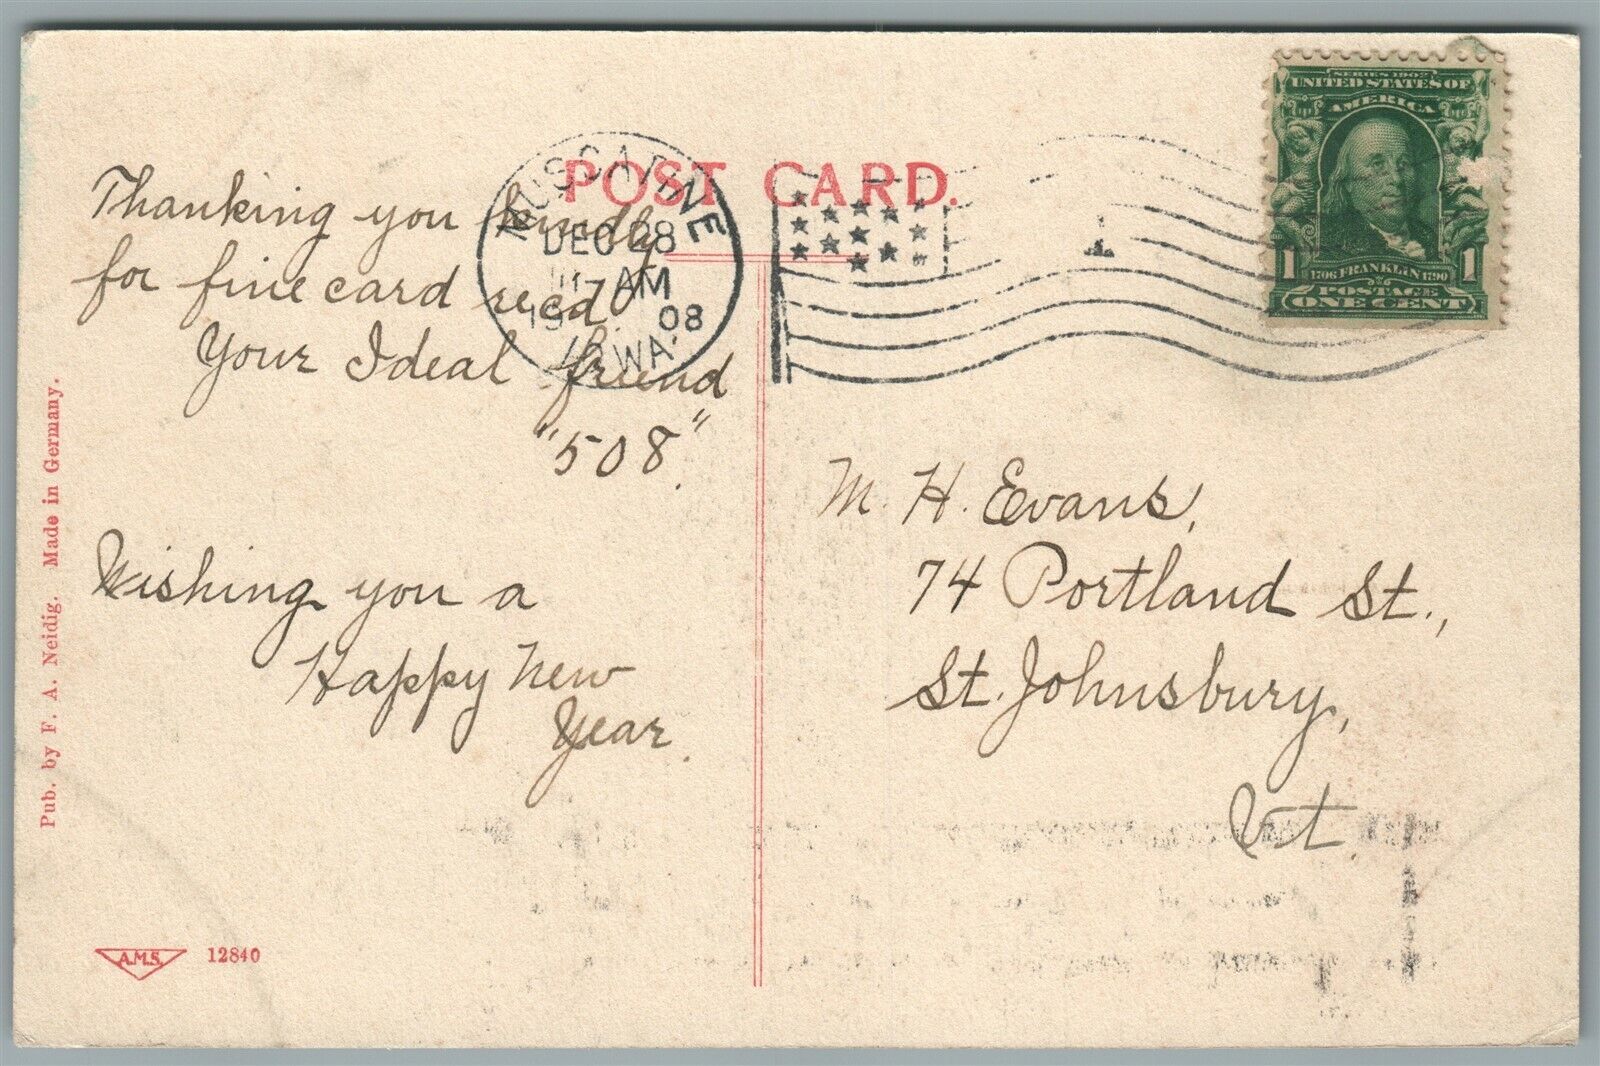 POST CARD.
Thanking you kindly
for fine card recd
Your Ideal friend
"508".
Wishing you a
Happy New
Year.
MUSCATINE
DEC 28
7 AM
19 08
IOWA.
1
SERIES 1902
UNITED STATES OF
AMERICA
1 1706 FRANKLIN 1790 1
POSTAGE
ONE CENT
M. H. Evans,
74 Portland St.,
St. Johnsbury,
Vt.
Pub. by F. A. Neidig. Made in Germany.
A.M.S. 12840